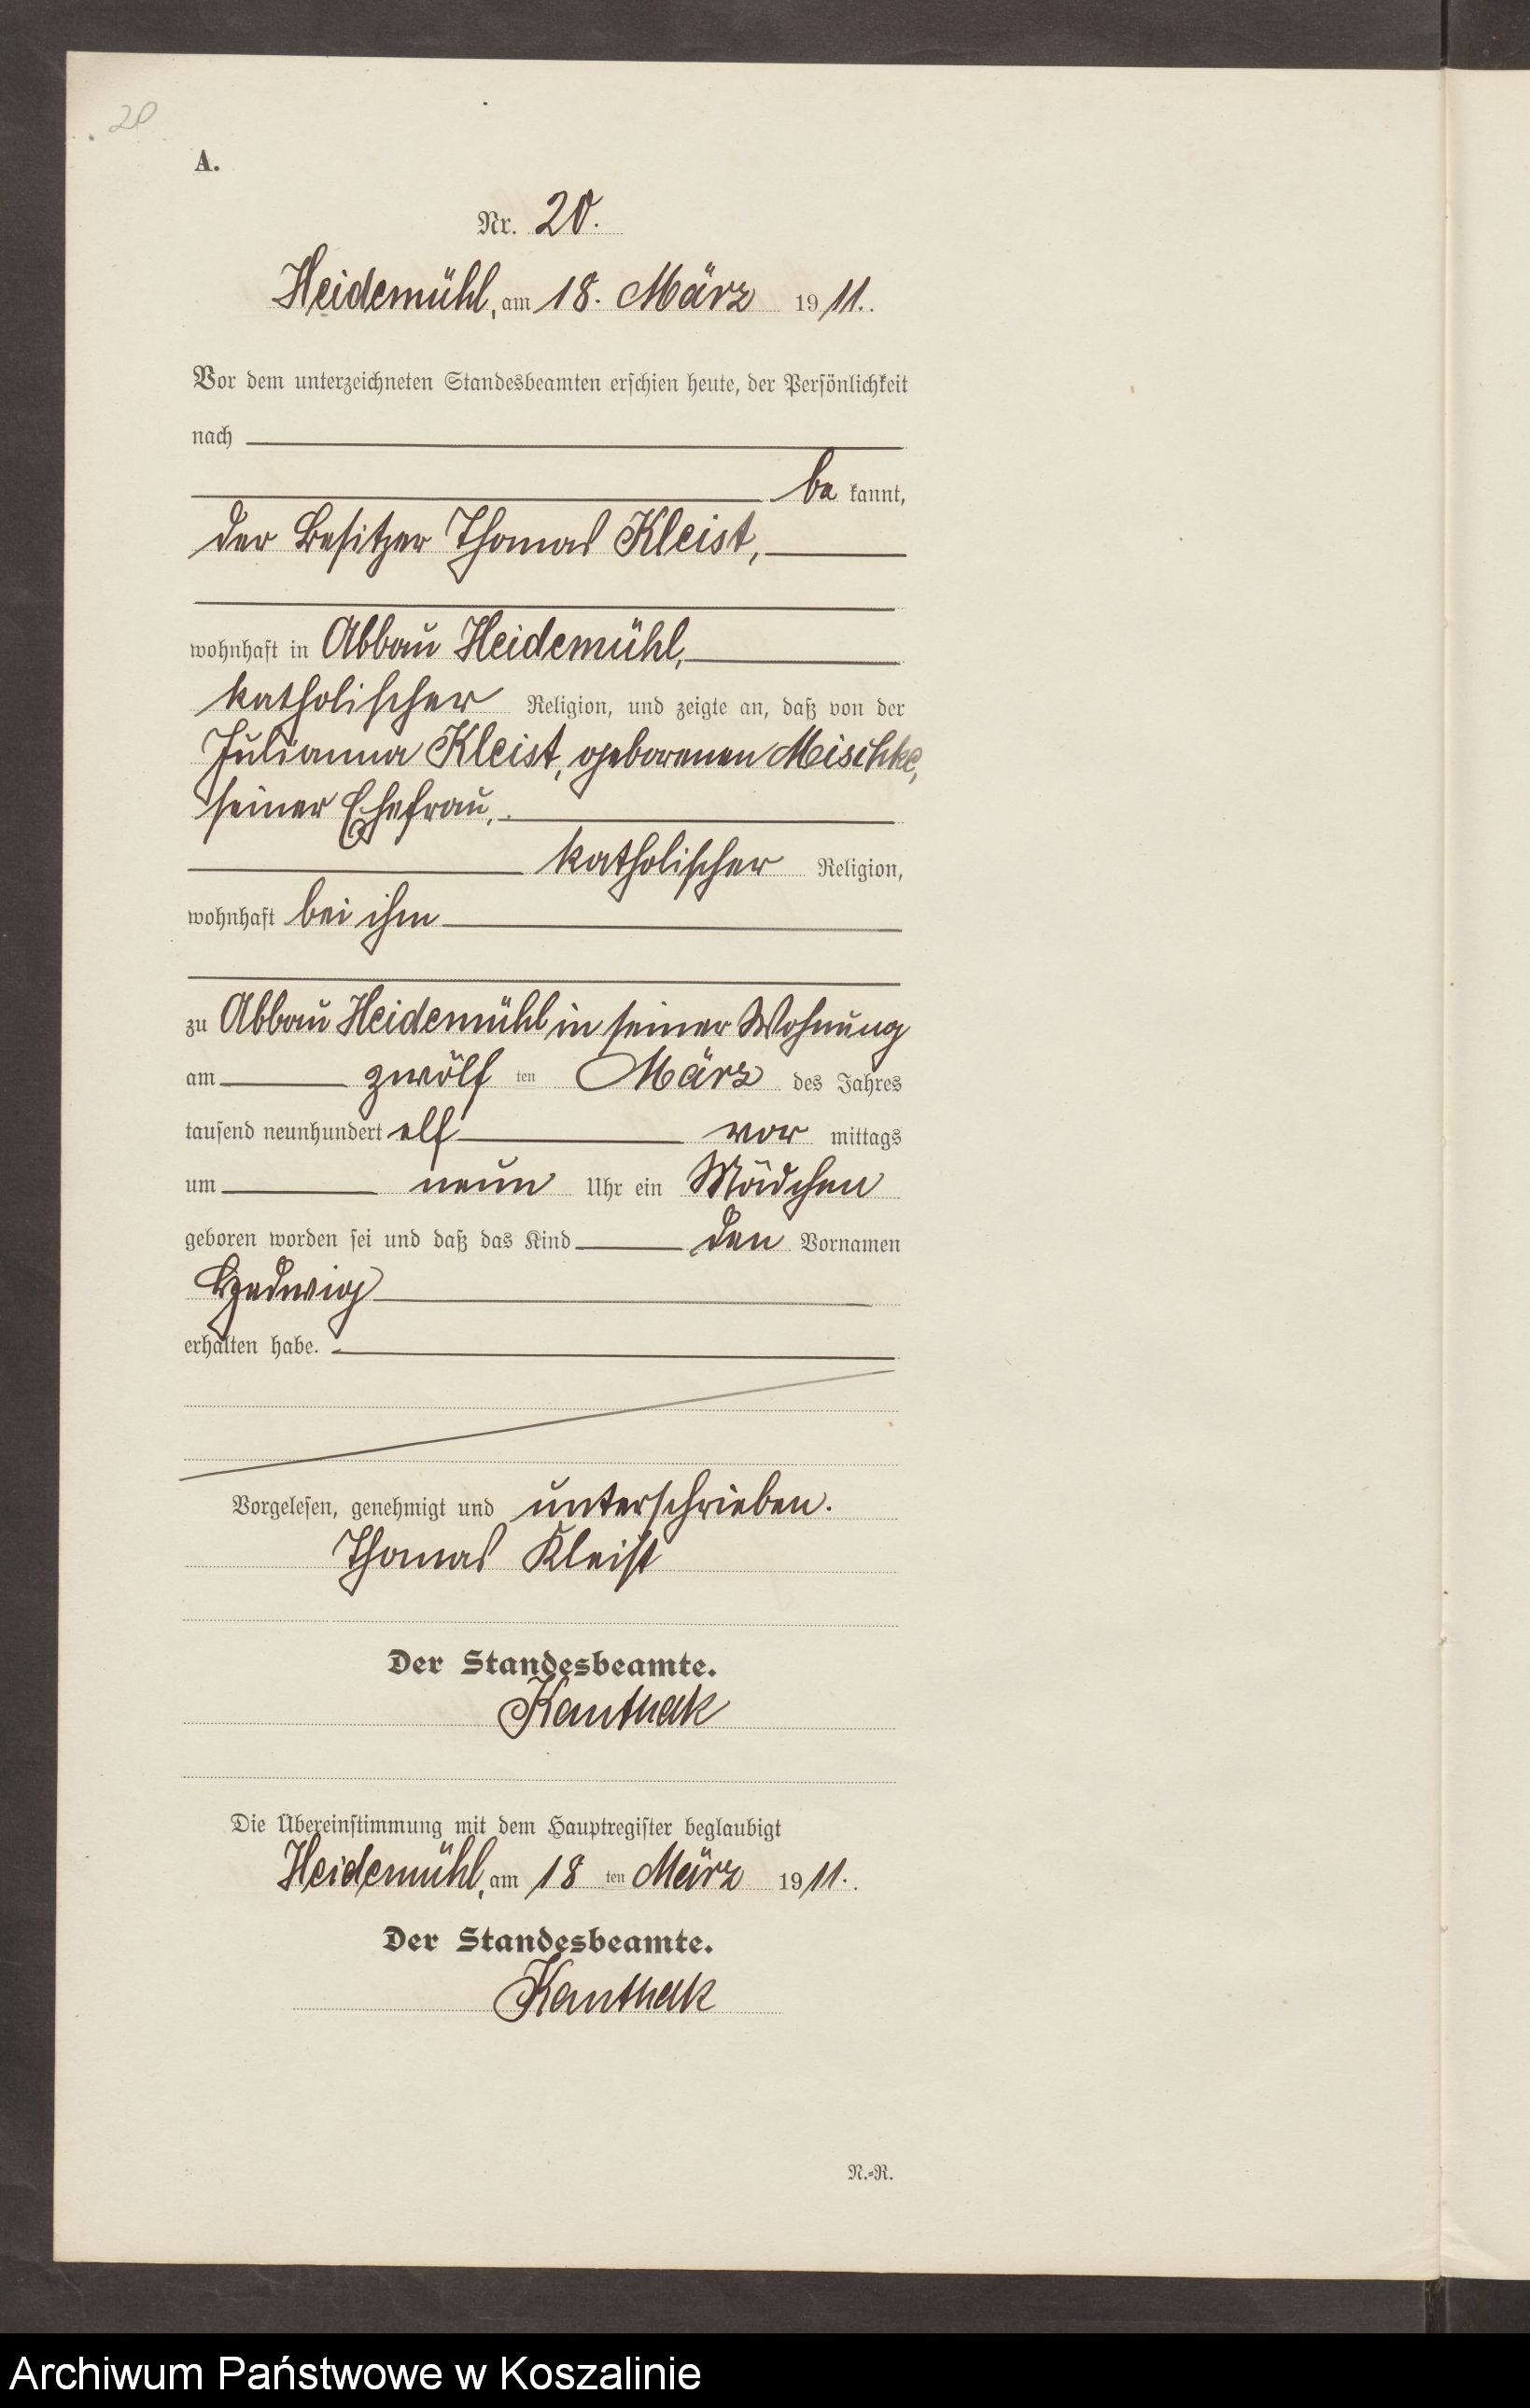 20
A.
Nr. 20.
Heidemühl, am 18. März 1911.
Vor dem unterzeichneten Standesbeamten erschien heute, der Persönlichkeit
nach
be kannt,
der Besitzer Thomas Kleist,
wohnhaft in Abbau Heidemühl,
katholischer Religion, und zeigte an, daß von der
Julianna Kleist, geborenen Mischke,
seiner Ehefrau,
katholischer Religion,
wohnhaft bei ihm
zu Abbau Heidemühl in seiner Wohnung
am zwölf ten März des Jahres
tausend neunhundert elf vor mittags
um neun Uhr ein Mädchen
geboren worden sei und daß das Kind den Vornamen
Hedwig
erhalten habe.
Vorgelesen, genehmigt und unterschrieben.
Thomas Kleist
Der Standesbeamte.
Kanthak
Die Übereinstimmung mit dem Hauptregister beglaubigt
Heidemühl, am 18 ten März 1911.
Der Standesbeamte.
Kanthak
N.=R.
Archiwum Państwowe w Koszalinie